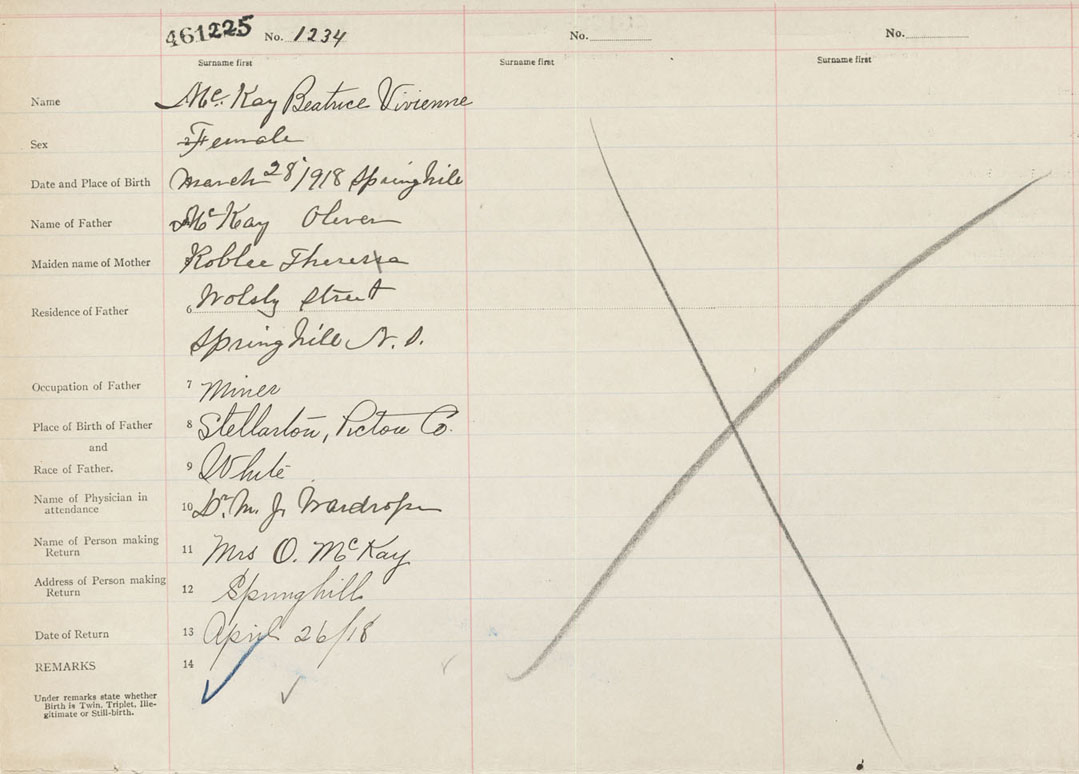 461225 No. 1234 No. No.
Surname first Surname first Surname first
Name McKay Beatrice Vivienne
Sex Female
Date and Place of Birth March 28/1918 Springhill
Name of Father McKay Oliver
Maiden name of Mother Roblee Theresa
Residence of Father
6 Wolsly Street
Springhill N. S.
Occupation of Father 7 Miner
Place of Birth of Father 8 Stellarton, Pictou Co.
and
Race of Father. 9 White
Name of Physician in
attendance 10 Dr. M. J. Wardrope
Name of Person making
Return 11 Mrs O. McKay
Address of Person making
Return 12 Springhill
Date of Return 13 April 26/18
REMARKS 14
Under remarks state whether
Birth is Twin, Triplet, Ille-
gitimate or Still-birth.